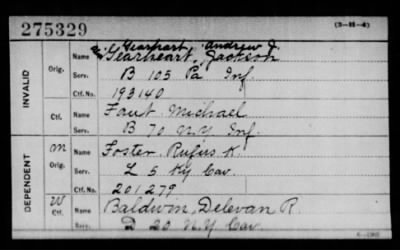 275329
(3-H-4)
Gearhart, Andrew J.
INVALID
Orig.
Name Gearheart, Jackson
Serv. B 105 Pa Inf.
Ctf. No. 193140
Ctf.
Name Faut Michael
Serv. B 70 N.Y. Inf.
DEPENDENT
M
Orig.
Name Foster, Rufus K.
Serv. L 5 Ky Cav.
Ctf. No. 201279
W
Ctf.
Name Baldwin, Delevan R.
Serv. D 20 N.Y. Cav.